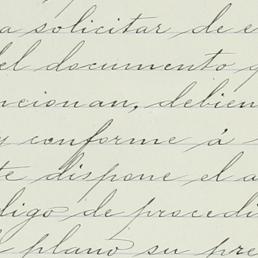 a solicitar de e
del documento q
ncionan, debien
y conforme á
te dispone el a
digo de procedi
l plano su pre